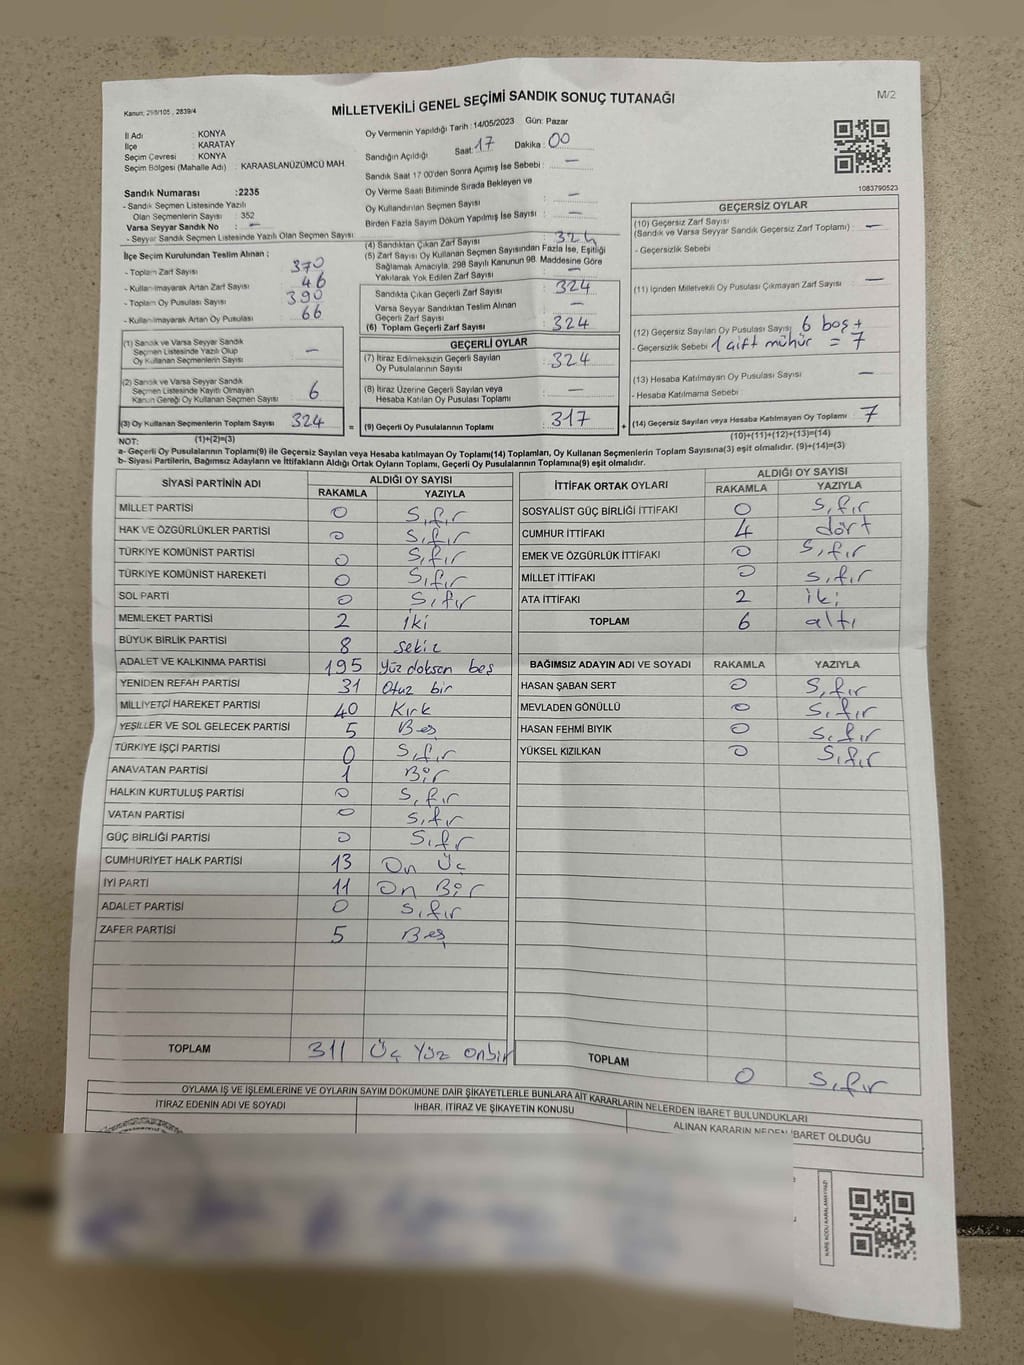 Kanun: 298/105 , 2839/4
MİLLETVEKİLİ GENEL SEÇİMİ SANDIK SONUÇ TUTANAĞI
M/2
İl Adı : KONYA
İlçe : KARATAY
Seçim Çevresi : KONYA
Seçim Bölgesi (Mahalle Adı) : KARAASLANÜZÜMCÜ MAH.
Sandık Numarası :2235
- Sandık Seçmen Listesinde Yazılı
Olan Seçmenlerin Sayısı : 352
Varsa Seyyar Sandık No : —
- Seyyar Sandık Seçmen Listesinde Yazılı Olan Seçmen Sayısı:
İlçe Seçim Kurulundan Teslim Alınan ;
- Toplam Zarf Sayısı : 370
- Kullanılmayarak Artan Zarf Sayısı : 46
- Toplam Oy Pusulası Sayısı : 390
- Kullanılmayarak Artan Oy Pusulası : 66
(1) Sandık ve Varsa Seyyar Sandık
Seçmen Listesinde Yazılı Olup
Oy Kullanan Seçmenlerin Sayısı : —
(2) Sandık ve Varsa Seyyar Sandık
Seçmen Listesinde Kayıtlı Olmayan
Kanun Gereği Oy Kullanan Seçmen Sayısı : 6
(3) Oy Kullanan Seçmenlerin Toplam Sayısı : 324
(1)+(2)=(3)
Oy Vermenin Yapıldığı Tarih : 14/05/2023 Gün: Pazar
Sandığın Açıldığı Saat: 17 Dakika : 00
Sandık Saat 17.00'den Sonra Açılmış İse Sebebi : —
Oy Verme Saati Bitiminde Sırada Bekleyen ve
Oy Kullandırılan Seçmen Sayısı : —
Birden Fazla Sayım Döküm Yapılmış İse Sayısı : —
(4) Sandıktan Çıkan Zarf Sayısı : 324
(5) Zarf Sayısı Oy Kullanan Seçmen Sayısından Fazla İse, Eşitliği
Sağlamak Amacıyla, 298 Sayılı Kanunun 98. Maddesine Göre
Yakılarak Yok Edilen Zarf Sayısı : —
Sandıkta Çıkan Geçerli Zarf Sayısı : 324
Varsa Seyyar Sandıktan Teslim Alınan
Geçerli Zarf Sayısı : —
(6) Toplam Geçerli Zarf Sayısı : 324
GEÇERLİ OYLAR
(7) İtiraz Edilmeksizin Geçerli Sayılan
Oy Pusulalarının Sayısı : 324
(8) İtiraz Üzerine Geçerli Sayılan veya
Hesaba Katılan Oy Pusulası Toplamı : —
= (9) Geçerli Oy Pusulalarının Toplamı : 317 +
1083790523
GEÇERSİZ OYLAR
(10) Geçersiz Zarf Sayısı
(Sandık ve Varsa Seyyar Sandık Geçersiz Zarf Toplamı) : —
- Geçersizlik Sebebi
(11) İçinden Milletvekili Oy Pusulası Çıkmayan Zarf Sayısı : —
(12) Geçersiz Sayılan Oy Pusulası Sayısı 6 boş +
- Geçersizlik Sebebi 1 çift mühür = 7
(13) Hesaba Katılmayan Oy Pusulası Sayısı : —
- Hesaba Katılmama Sebebi
(14) Geçersiz Sayılan veya Hesaba Katılmayan Oy Toplamı : 7
(10)+(11)+(12)+(13)=(14)
NOT:
a- Geçerli Oy Pusulalarının Toplamı(9) ile Geçersiz Sayılan veya Hesaba katılmayan Oy Toplamı(14) Toplamları, Oy Kullanan Seçmenlerin Toplam Sayısına(3) eşit olmalıdır. (9)+(14)=(3)
b- Siyasi Partilerin, Bağımsız Adayların ve İttifakların Aldığı Ortak Oyların Toplamı, Geçerli Oy Pusulalarının Toplamına(9) eşit olmalıdır.
SİYASİ PARTİNİN ADI ALDIĞI OY SAYISI
RAKAMLA YAZIYLA
MİLLET PARTİSİ 0 Sıfır
HAK VE ÖZGÜRLÜKLER PARTİSİ 0 Sıfır
TÜRKİYE KOMÜNİST PARTİSİ 0 Sıfır
TÜRKİYE KOMÜNİST HAREKETİ 0 Sıfır
SOL PARTİ 0 Sıfır
MEMLEKET PARTİSİ 2 iki
BÜYÜK BİRLİK PARTİSİ 8 sekiz
ADALET VE KALKINMA PARTİSİ 195 Yüz doksan beş
YENİDEN REFAH PARTİSİ 31 Otuz bir
MİLLİYETÇİ HAREKET PARTİSİ 40 Kırk
YEŞİLLER VE SOL GELECEK PARTİSİ 5 Beş
TÜRKİYE İŞÇİ PARTİSİ 0 Sıfır
ANAVATAN PARTİSİ 1 Bir
HALKIN KURTULUŞ PARTİSİ 0 Sıfır
VATAN PARTİSİ 0 Sıfır
GÜÇ BİRLİĞİ PARTİSİ 0 Sıfır
CUMHURİYET HALK PARTİSİ 13 On Üç
İYİ PARTİ 11 On Bir
ADALET PARTİSİ 0 Sıfır
ZAFER PARTİSİ 5 Beş
TOPLAM 311 Üç Yüz onbir
İTTİFAK ORTAK OYLARI ALDIĞI OY SAYISI
RAKAMLA YAZIYLA
SOSYALİST GÜÇ BİRLİĞİ İTTİFAKI 0 Sıfır
CUMHUR İTTİFAKI 4 dört
EMEK VE ÖZGÜRLÜK İTTİFAKI 0 Sıfır
MİLLET İTTİFAKI 0 Sıfır
ATA İTTİFAKI 2 iki
TOPLAM 6 altı
BAĞIMSIZ ADAYIN ADI VE SOYADI RAKAMLA YAZIYLA
HASAN ŞABAN SERT 0 Sıfır
MEVLADEN GÖNÜLLÜ 0 Sıfır
HASAN FEHMİ BIYIK 0 Sıfır
YÜKSEL KIZILKAN 0 Sıfır
TOPLAM 0 Sıfır
OYLAMA İŞ VE İŞLEMLERİNE VE OYLARIN SAYIM DÖKÜMÜNE DAİR ŞİKAYETLERLE BUNLARA AİT KARARLARIN NELERDEN İBARET BULUNDUKLARI
İTİRAZ EDENİN ADI VE SOYADI
İHBAR, İTİRAZ VE ŞİKAYETİN KONUSU
ALINAN KARARIN NEDEN İBARET OLDUĞU